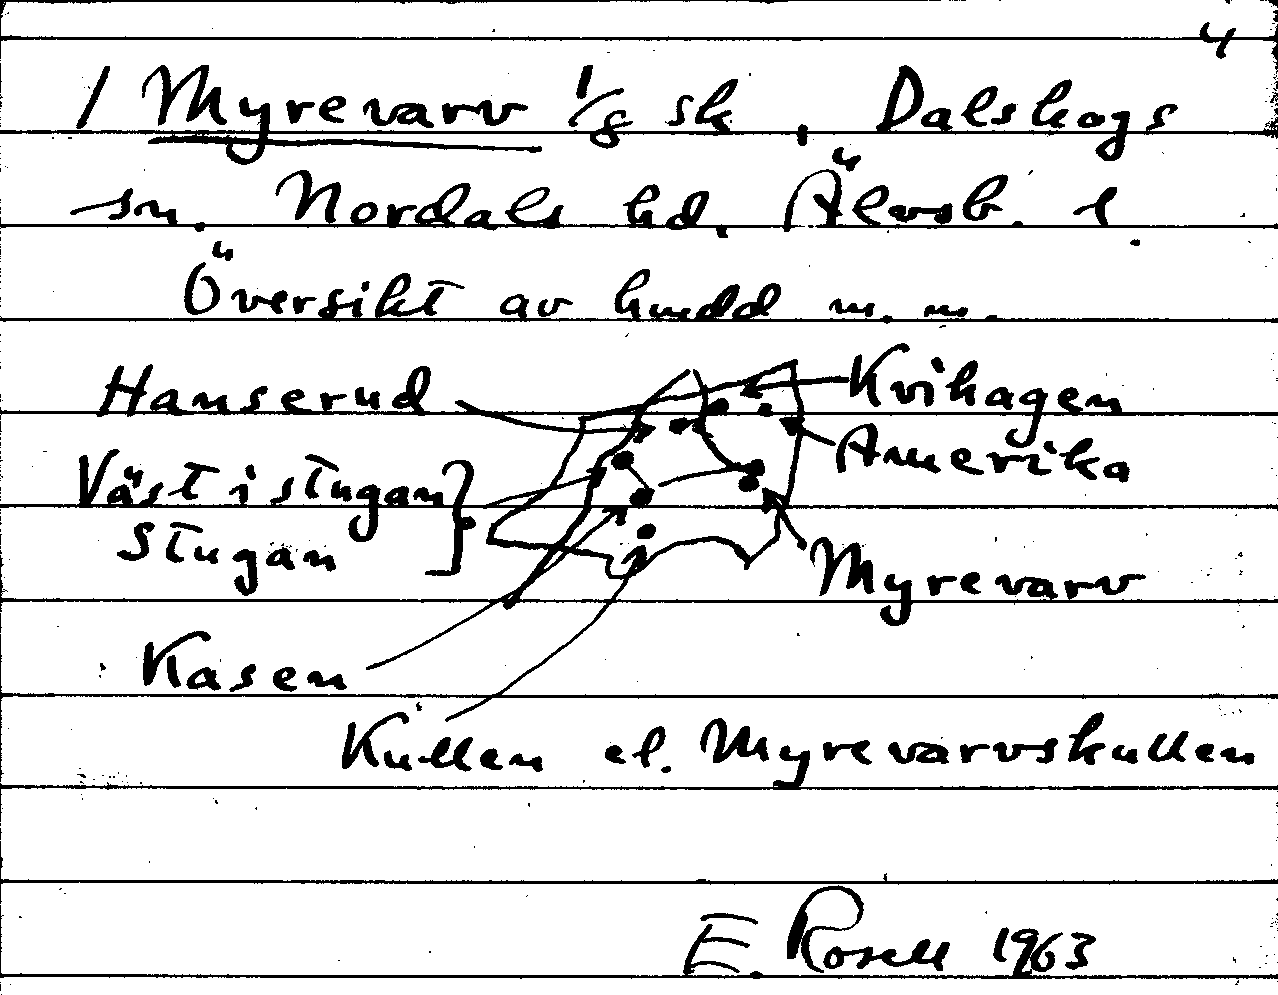 4
/ Myrevarv 1/8 sk, Dalskogs
sn. Nordals hd, Älvsb. l.
Översikt av hmdd m. m.
Hanserud
Kvihagen
Amerika
Västistugan
Stugan
Myrevarv
Kasen
Kullen el. Myrevarvskullen
E. Rosell 1963